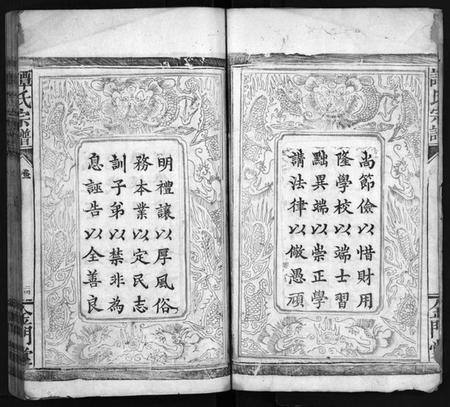 尚節儉以惜財用
隆學校以端士習
黜異端以崇正學
講法律以儆愚頑
明禮讓以厚風俗
務本業以定民志
訓子弟以禁非為
息誣告以全善良
譚氏宗譜